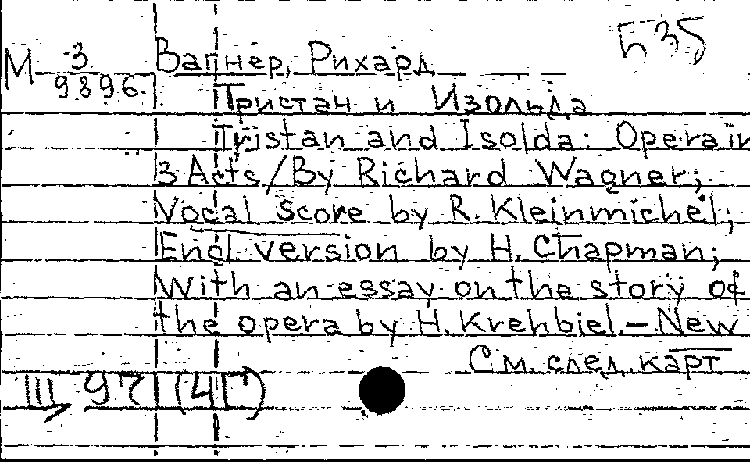 Б35
М 3 Вагнер, Рихард
9896.
Тристан и Изольда
Tristan and Isolda: Opera in
3 Acts/By Richard Wagner;
Vocal score by R. Kleinmichel;
Engl version by H. Chapman;
With an essay on the story of
the opera by H. Krehbiel. – New
См. след. карт
Ш, 97 (4Г)